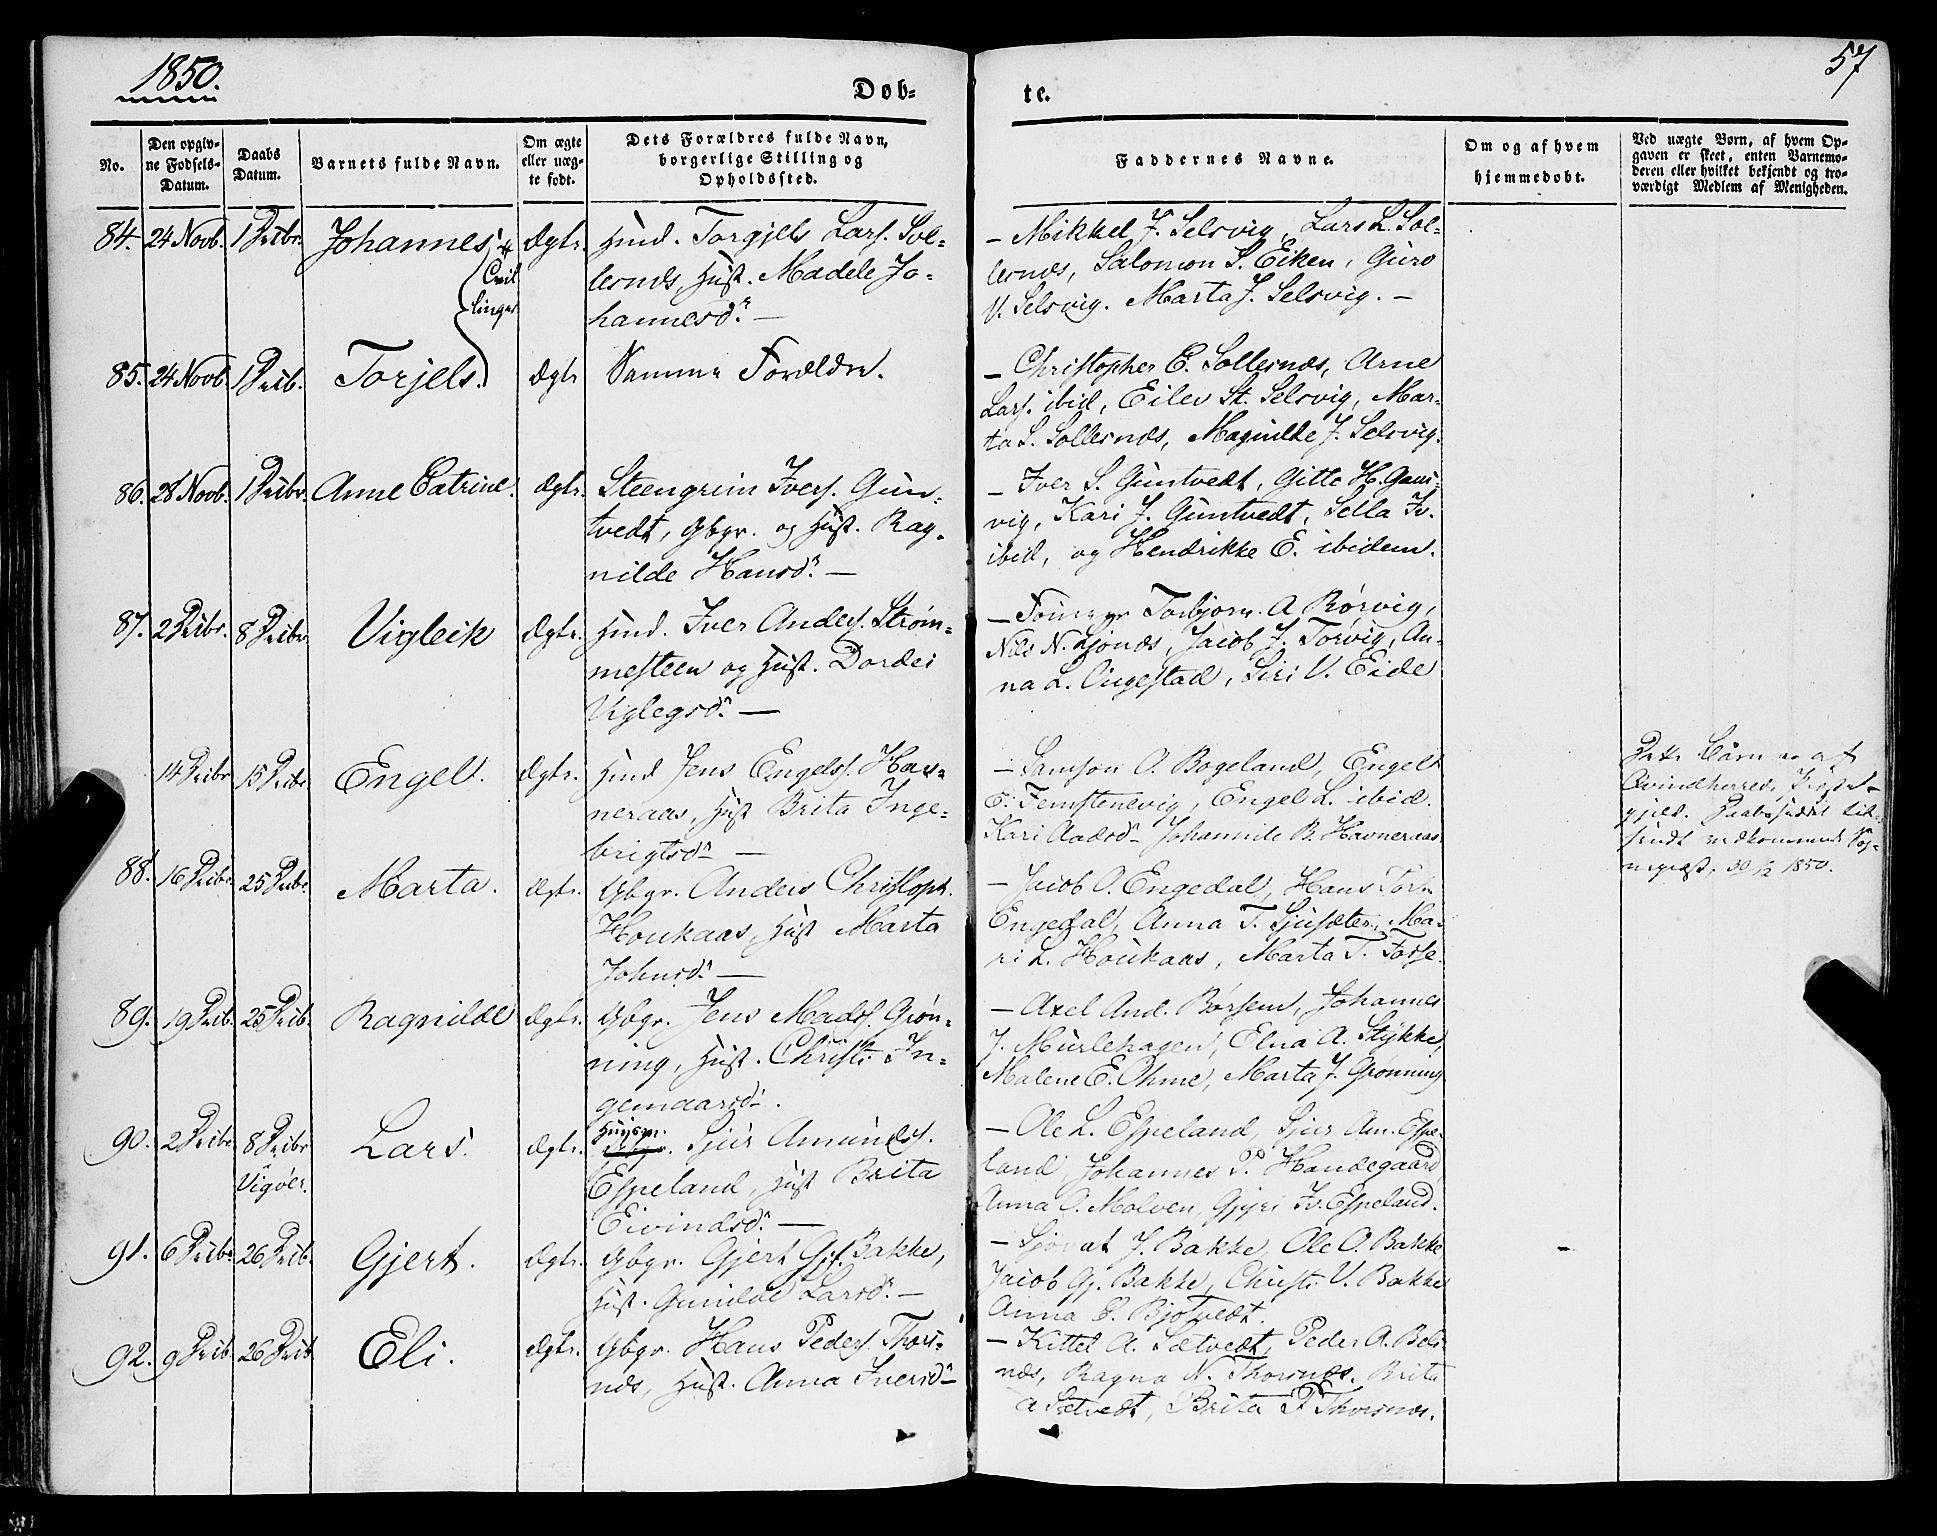 1850.
57
Døb-
te.
No.
Den opgiv-
ne Fødsels-
Datum.
Daabs
Datum.
Barnets fulde Navn.
Om ægte
eller uæg-
te født.
Dets Forældres fulde Navn,
borgerlige Stilling og
Opholdssted.
Faddernes Navne.
Om og af hvem
hjemmedøbt.
Ved uægte Børn, af hvem Op-
gaven er skeet, enten Barnemo-
deren eller hvilket bekjendt og tro-
værdigt Medlem af Menigheden.
84. 24 Novb. 1 Dcibr. Johannes, Ægte. Hmd. Torgjels Lars. Sol-
lesnds, Hust. Madele Jo-
hannesd. —
Tvil
linger
— Mikkel J. Selsvig, Lars L. Sol-
lesnds, Salomon S. Eiken, Guro
V. Selsvig. Marta J. Selsvig. —
85. 24 Novb. 1 Dcib. Torjels. Ægte Samme Forældre.
— Christopher E. Sollesnds, Arne
Lars. ibid, Eilev St. Selsvig, Mar-
ta S. Sollesnds, Magnilde J. Selsvig.
86. 28 Novb. 1 Dcibr. Anne Catrine. Ægte. Steengrim Ivers. Gun-
tvedt, Gbgr. og Hust. Rag-
nilde Hansd. —
— Iver S. Guntvedt, Gitte H. Gaus-
vig, Kari J. Guntvedt, Sella Iv.
ibid, og Hendrikke E. ibidem.
87. 2 Dcibr. 8 Dcibr. Vigleik Ægte. Hmd. Iver Anders. Strøm-
mesteen og Hust. Dordei
Viglegsd. —
— Torbjørn A Rørvig,
Nils N. Ljonds, Jacob J. Torvig, An-
na L. Ougestad, Siri V. Eide
14 Dcibr 15 Dcibr Engel. Ægte. Hmd Jens Engels. Hav-
neraas, Hust Brita Inge-
brigtsd —
— Samson O. Bogeland, Engel
E. Femstenevig, Engel L. ibid.
Kari Aadsd Johannile B. Havneraas.
Dette Barn er af
Qvindherreds Præste-
gjeld. Daabsseddel til-
sendt vedkommende Sog-
nepræst, 30/12 1850.
88. 16 Dcibr. 25 Dcibr. Marta. Ægte. Gbgr. Anders Christoph.
Houkaas, Hust Marta
Johnsd. —
— Jacob O. Engedal, Hans Tort.
Engedal, Anna T. Sjusæter, Ma-
ri L. Houkaas, Marta T. Torsæ.
89. 19 Dcib. 25 Dcib. Ragnilde Ægte. Gbgr. Jens Mads. Grøn-
ning, Hust. Christi In-
gemaarsd.
— Axel And. Børsem, Johannes
J. Murlehagen, Elna A. Stykke,
Malene E. Ohme, Marta J. Grønning
90. 2 Dcibr 8 Dcibr Lars. Ægte. Huusm. Sjur Amunds.
Vigøer.
Espeland, Hust Brita
Eivindsd. —
— Ole L. Espeland, Sjur Am. Espe-
land, Johannes P. Handegaard,
Anna O. Molven, Gjyri Iv. Espeland.
91. 6 Dcibr 26 Dcib. Gjert. Ægte. Gbgr. Gjert Gj. Bakke,
Hust. Gunilde Larsd. —
— Sjovat J. Bakke, Ole O. Bakke
Jacob Gj. Bakke, Christi V. Bakke
Anna C. Bjotvedt.
92. 9 Dcib. 26 Dcib Eli. Ægte. Gbgr. Hans Peders. Thors-
nds, Hust. Anna Iversd
— Kittel A. Sætvedt, Peder A. Bels-
nds, Ragna N. Thorsnds. Brita
A Sætvedt, Brita P Thorsnds.